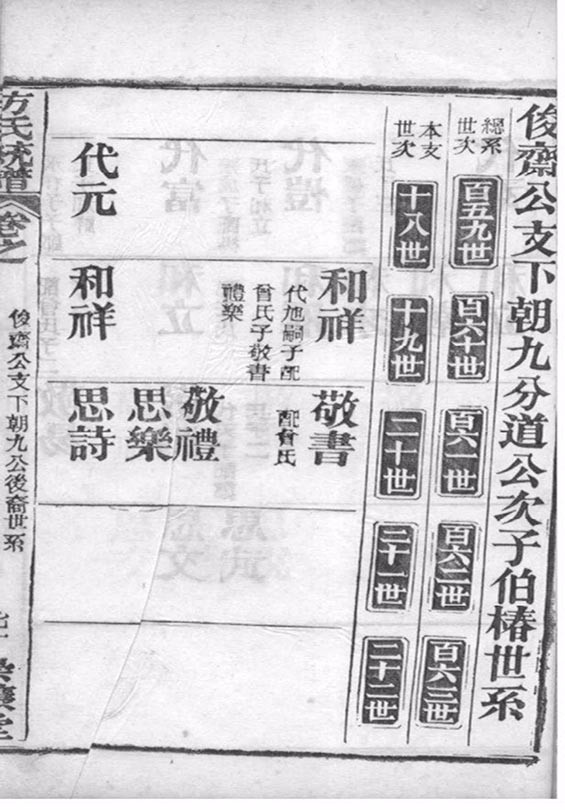 俊齋公支下朝九分道公次子伯椿世系
總系世次
百五九世
百六十世
百六一世
百六二世
百六三世
本支世次
十八世
十九世
二十世
二十一世
二十二世
和祥
代旭嗣子配
曾氏子敬書
禮樂
敬書
配曾氏
敬禮
思樂
代元
和祥
思詩
方氏統譜
卷之一
俊齋公支下朝九公後裔世系